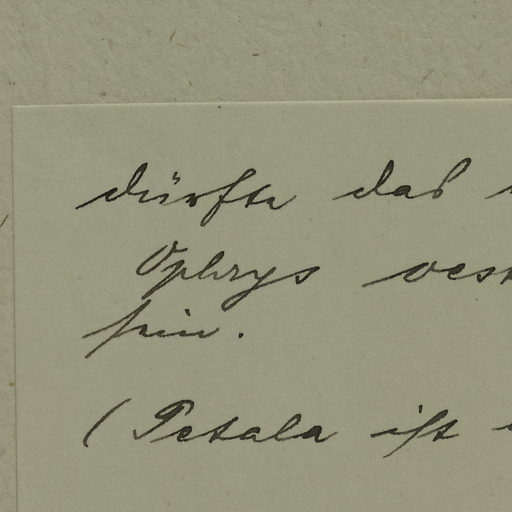 dürfte das
Ophrys
sein.
(Petala ist